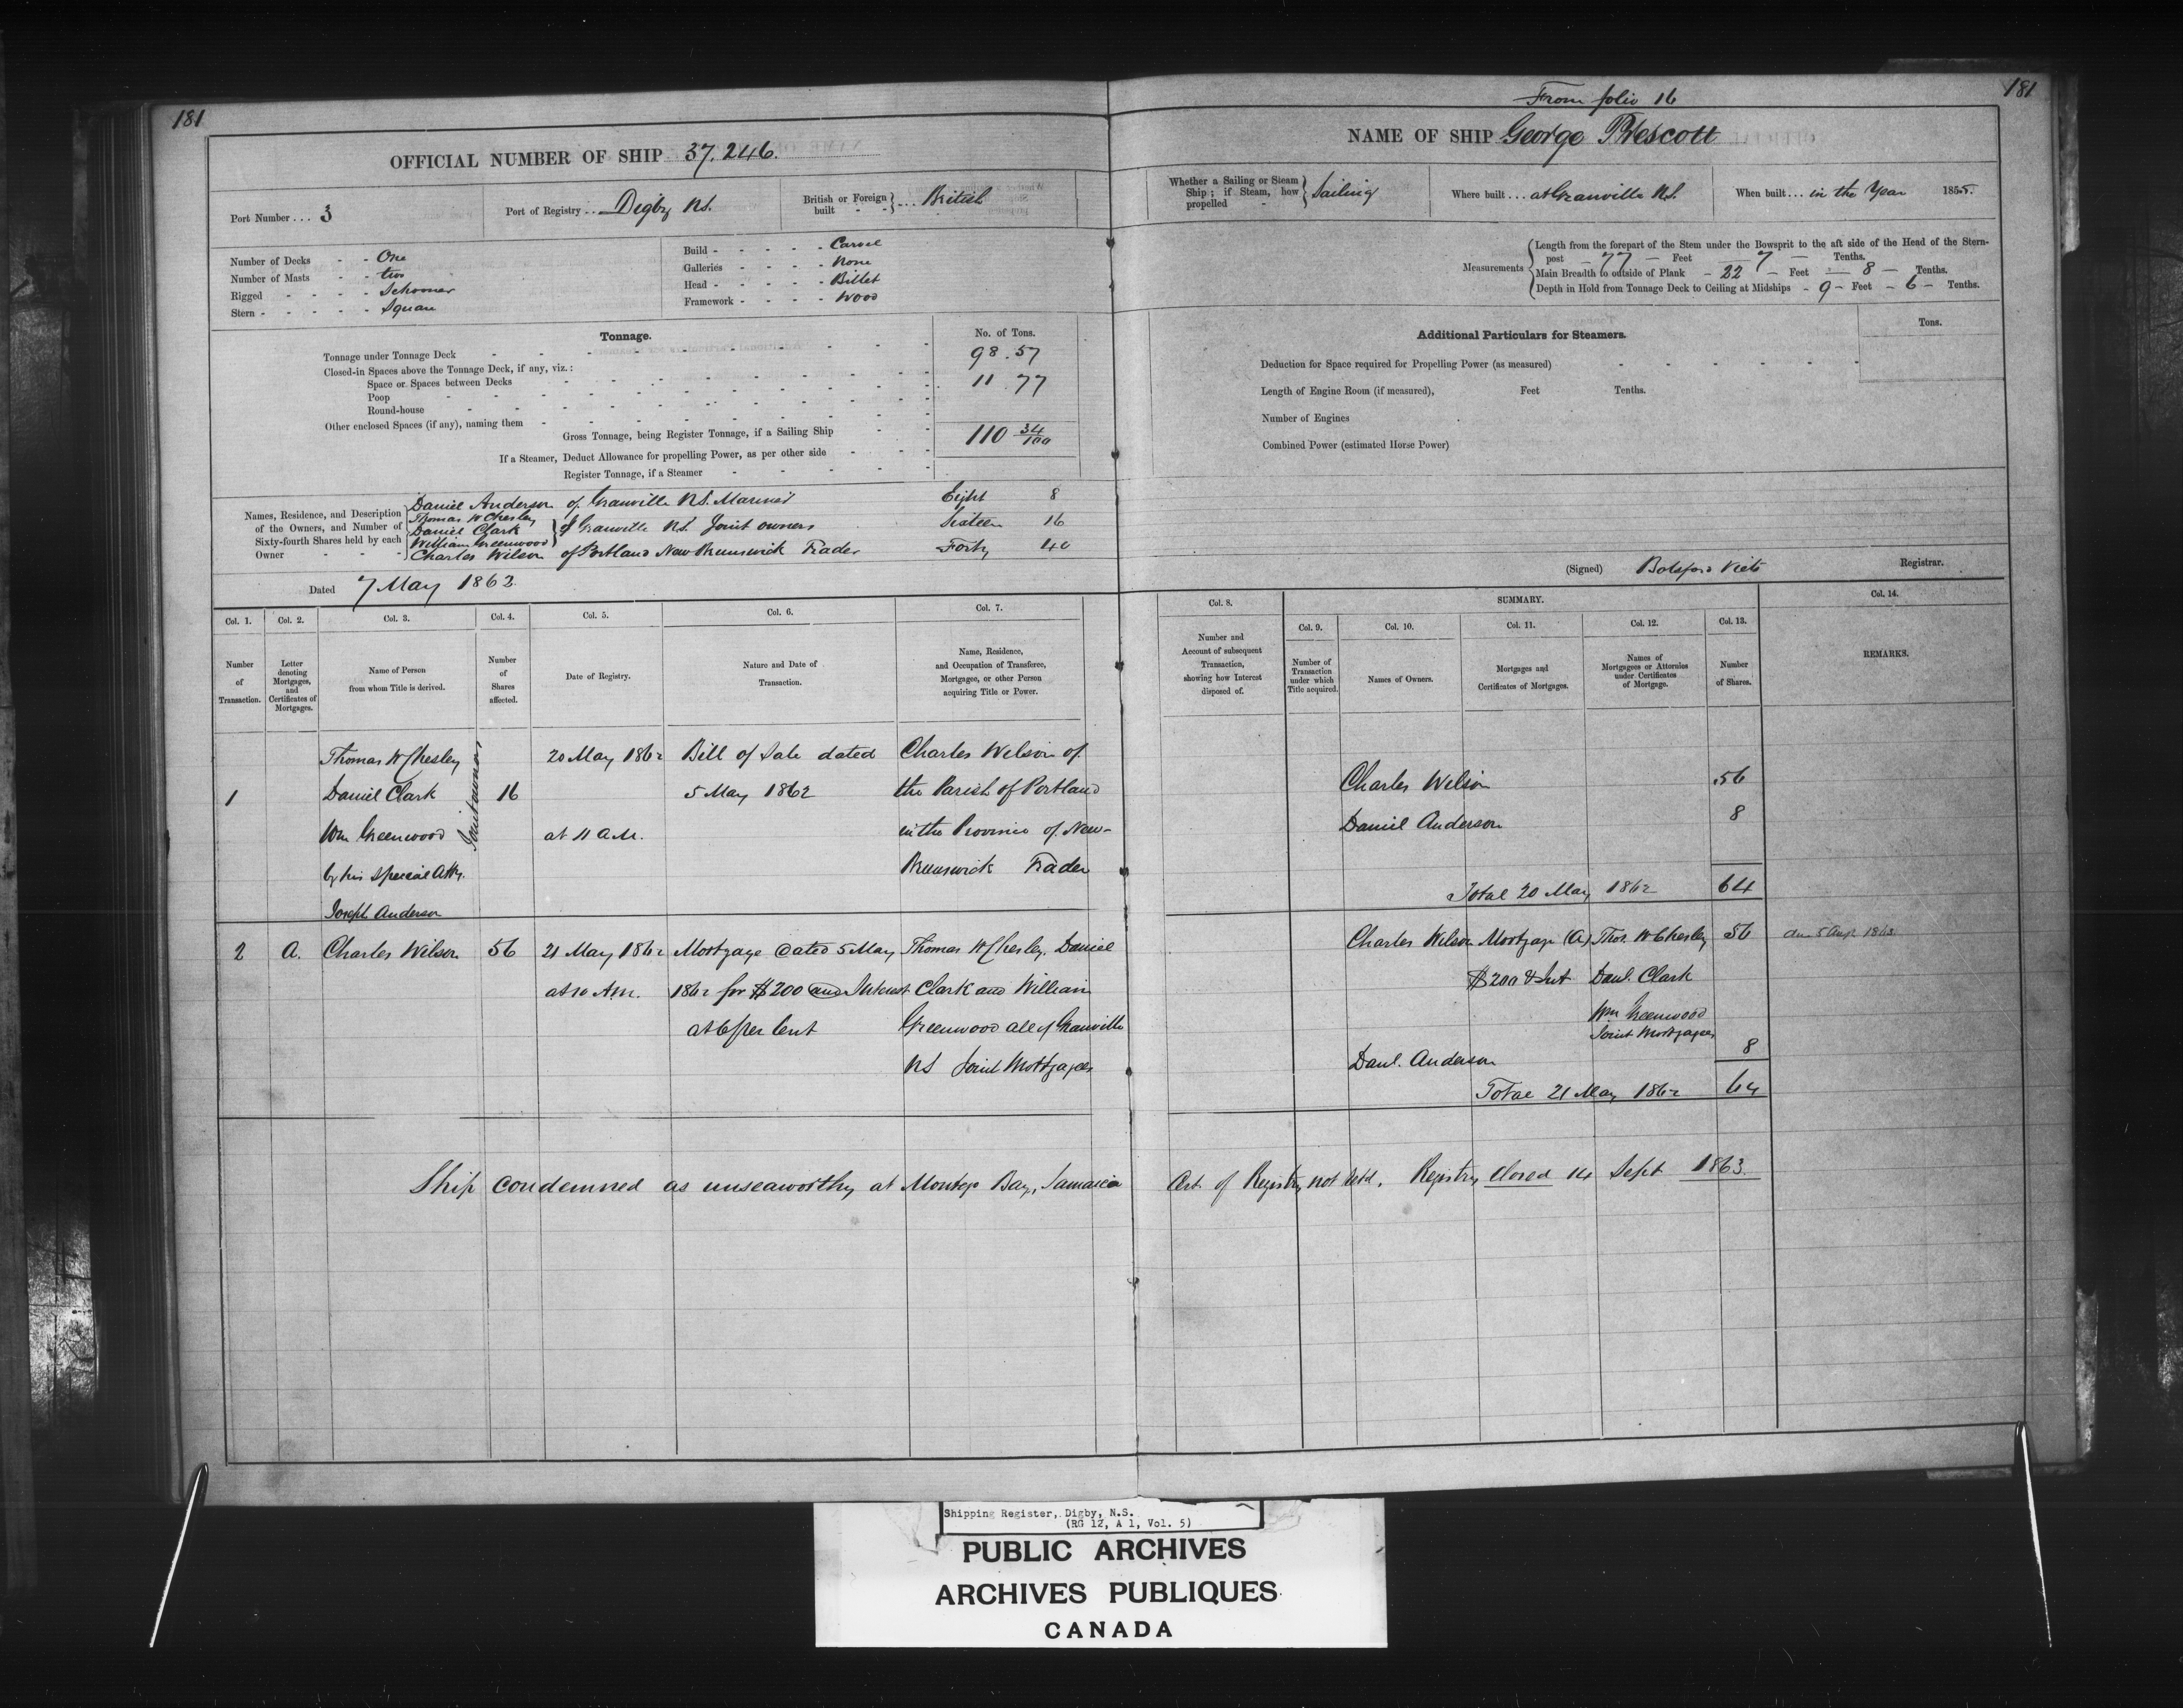 181
OFFICIAL NUMBER OF SHIP 37.246.
Port Number ... 3
Port of Registry ... Digby N.S.
British or Foreign built - - } ... British
Number of Decks - - One
Number of Masts - - two
Rigged - - - - Schooner
Stern - - - - - Square
Build - - - - - Carvel
Galleries - - - - None
Head - - - - - Billet
Framework - - - - Wood
Tonnage.
No. of Tons.
Tonnage under Tonnage Deck 98.57
Closed-in Spaces above the Tonnage Deck, if any, viz.:
Space or Spaces between Decks 11.77
Poop
Round-house
Other enclosed Spaces (if any), naming them
Gross Tonnage, being Register Tonnage, if a Sailing Ship 110 34/100
If a Steamer, Deduct Allowance for propelling Power, as per other side
Register Tonnage, if a Steamer
Names, Residence, and Description of the Owners, and Number of Sixty-fourth Shares held by each Owner
Daniel Anderson of Granville N.S. Mariner Eight 8
Thomas W Chesley
Daniel Clark } of Granville N.S. Joint owners Sixteen 16
William Greenwood
Charles Wilson of Portland New Brunswick Trader Forty 40
Dated 7 May 1862.
Col. 1. Number of Transaction.
Col. 2. Letter denoting Mortgages, and Certificates of Mortgages.
Col. 3. Name of Person from whom Title is derived.
Col. 4. Number of Shares affected.
Col. 5. Date of Registry.
Col. 6. Nature and Date of Transaction.
Col. 7. Name, Residence, and Occupation of Transferee, Mortgagee, or other Person acquiring Title or Power.
Thomas W Chesley 20 May 1862 Bill of Sale dated Charles Wilson of
1 Daniel Clark Joint owners 16 5 May 1862 the Parish of Portland
Wm Greenwood at 11 A.M. in the Province of New-
by his special Atty. Brunswick Trader
Joseph Anderson
2 A. Charles Wilson 56 21 May 1862 Mortgage dated 5 May Thomas W Chesley, Daniel
at 10 A.M. 1862 for $200 and Interest Clark and William
at 6 per Cent Greenwood all of Granville
NS Joint Mortgagees
Ship condemned as unseaworthy at Montego Bay, Jamaica
181
From folio 16
NAME OF SHIP George Prescott
Whether a Sailing or Steam Ship; if Steam, how propelled - } Sailing
Where built ... at Granville N.S.
When built ... in the Year 1855.
Measurements
Length from the forepart of the Stem under the Bowsprit to the aft side of the Head of the Stern-
post - 77 - Feet - 7 - Tenths.
Main Breadth to outside of Plank - 22 - Feet - 8 - Tenths.
Depth in Hold from Tonnage Deck to Ceiling at Midships - 9 - Feet - 6 - Tenths.
Additional Particulars for Steamers.
Tons.
Deduction for Space required for Propelling Power (as measured)
Length of Engine Room (if measured), Feet Tenths.
Number of Engines
Combined Power (estimated Horse Power)
(Signed) Botsford Viets Registrar.
Col. 8. Number and Account of subsequent Transaction, showing how Interest disposed of.
SUMMARY.
Col. 9. Number of Transaction under which Title acquired.
Col. 10. Names of Owners.
Col. 11. Mortgages and Certificates of Mortgages.
Col. 12. Names of Mortgagees or Attornies under Certificates of Mortgage.
Col. 13. Number of Shares.
Col. 14. REMARKS.
Charles Wilson 56
Daniel Anderson 8
Total 20 May 1862 64
Charles Wilson Mortgage (A) Thos. W Chesley 56 due 5 Augt 1863
$200 & Int Danl. Clark
Wm Greenwood
Joint Mortgagees
Danl. Anderson 8
Total 21 May 1862 64
Cert. of Registry not Retd. Registry closed 14 Sept 1863.
Shipping Register, Digby, N.S.
(RG 12, A 1, Vol. 5)
PUBLIC ARCHIVES
ARCHIVES PUBLIQUES
CANADA